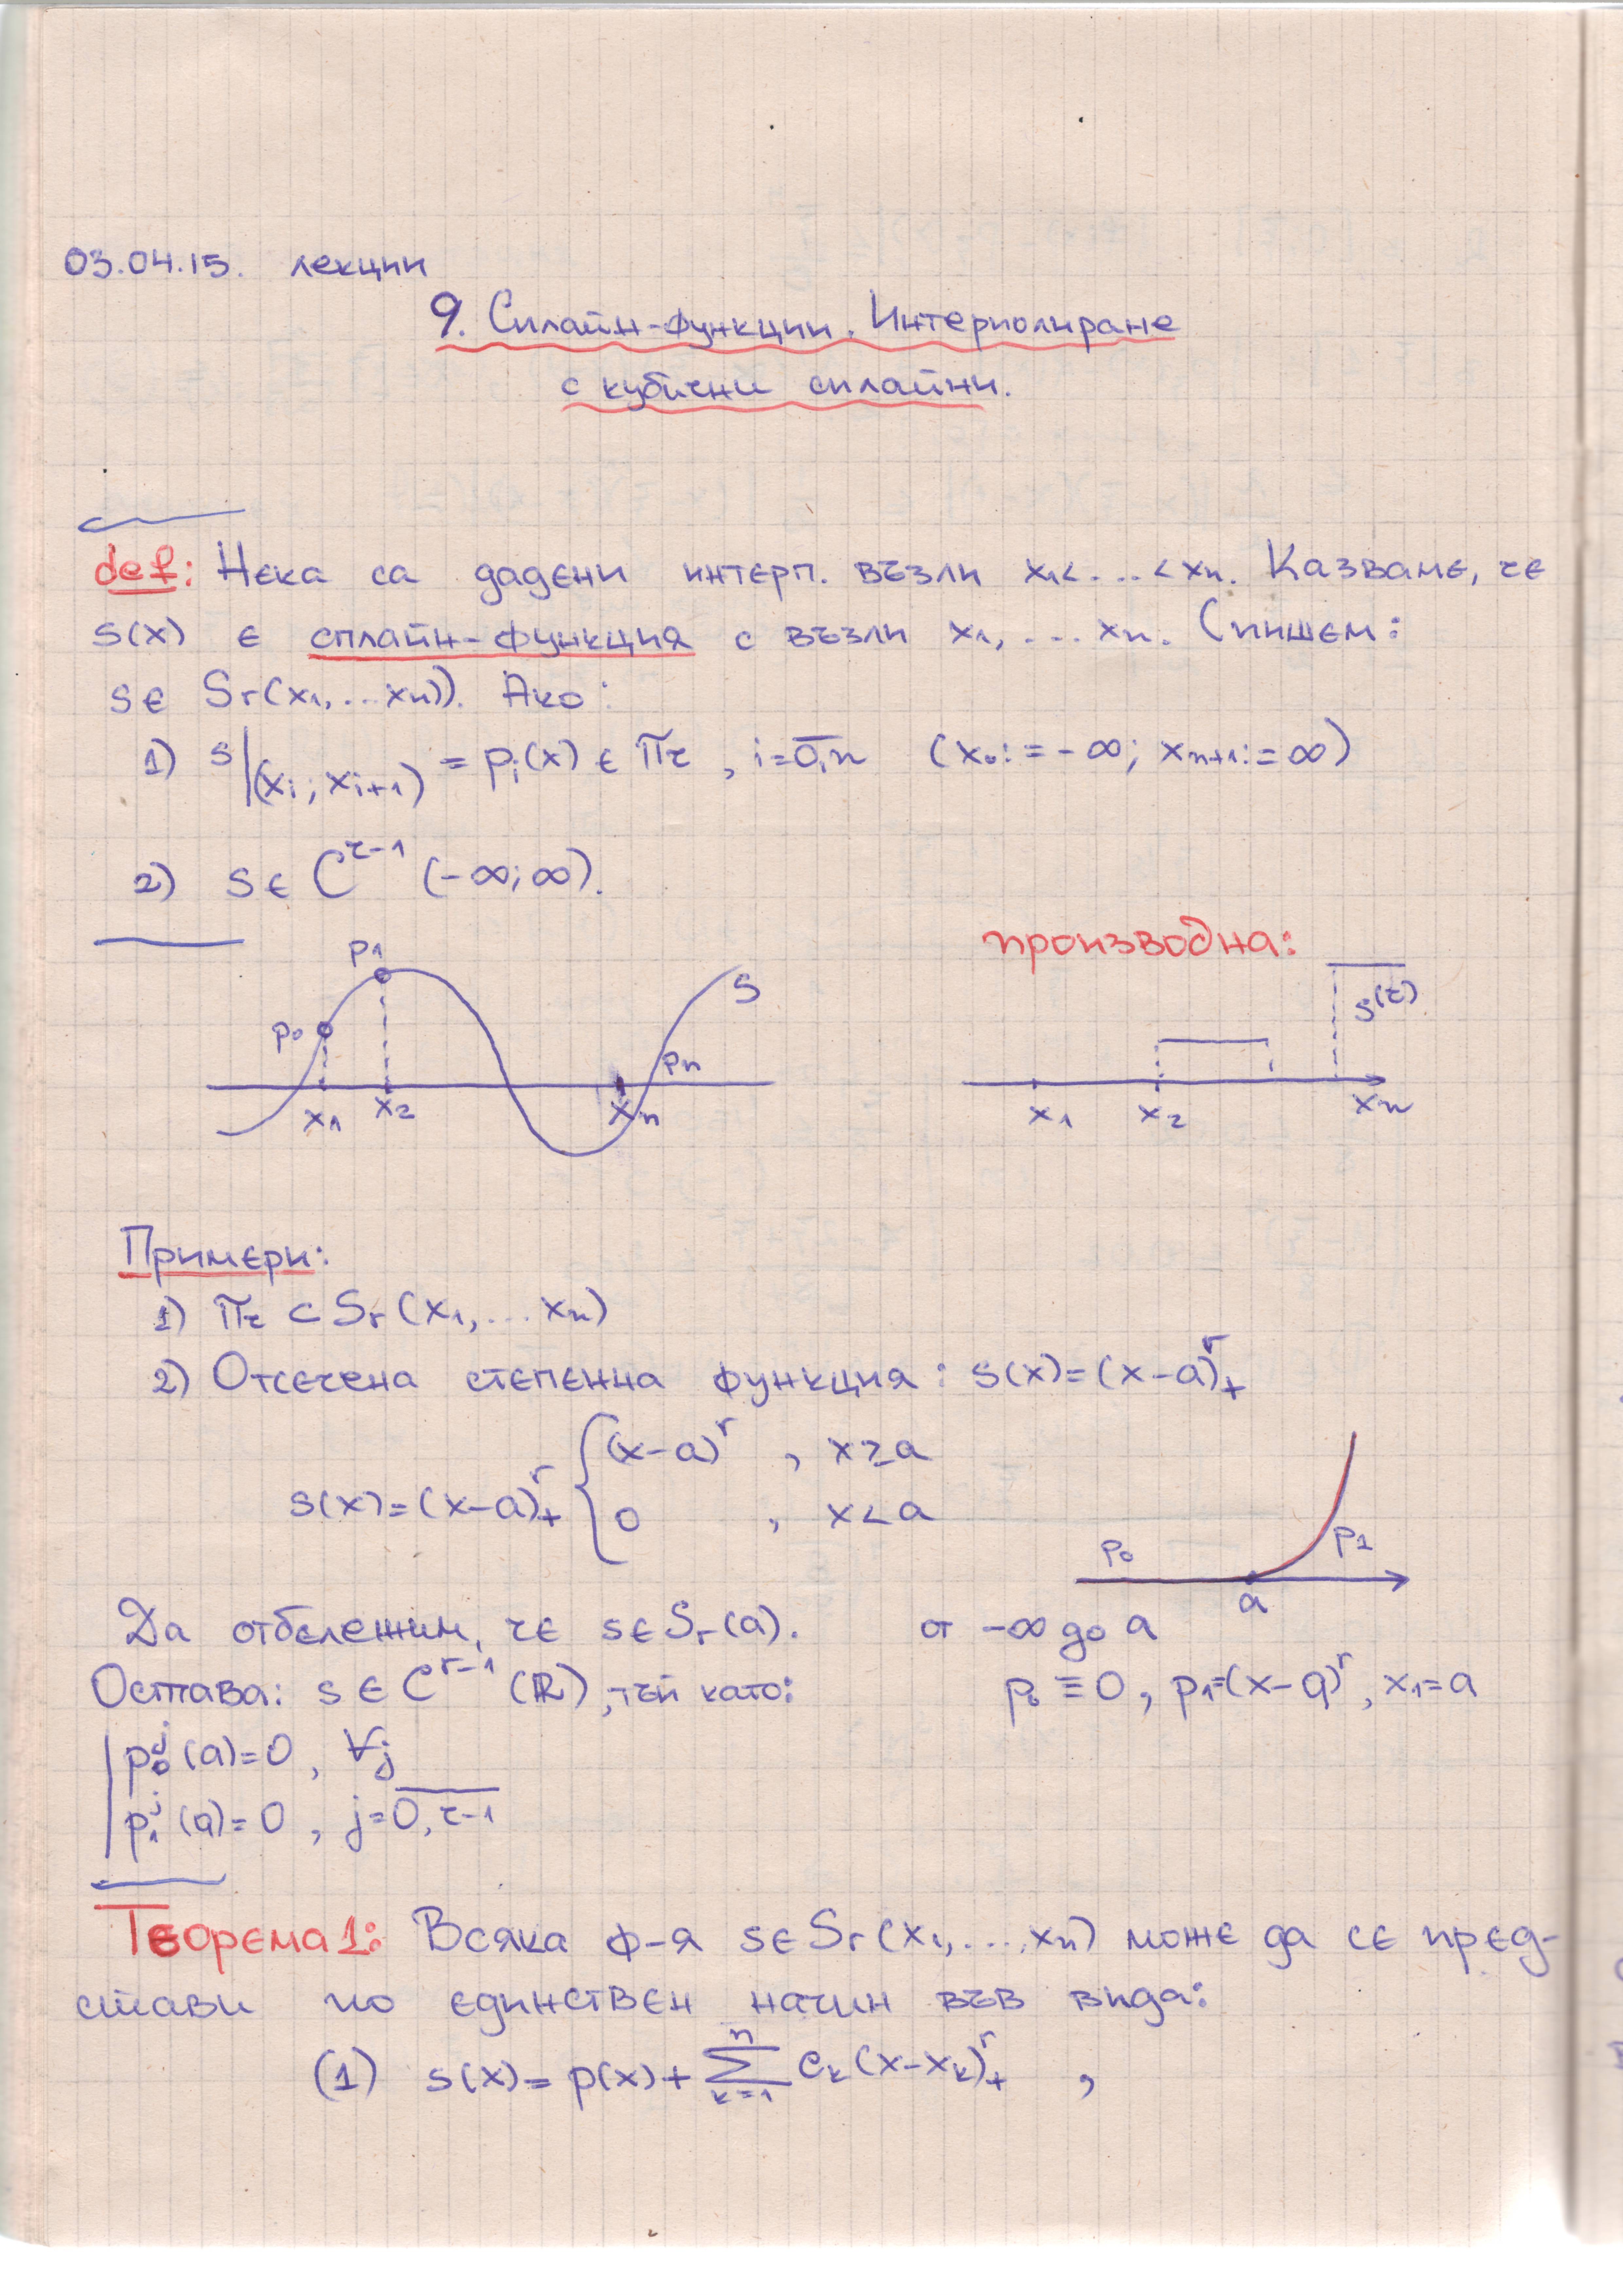 03.04.15. лекции
9. Сплайн-функции. Интерполиране
с кубични сплайни.
def: Нека са дадени интерп. възли x₁< ... < xₙ. Казваме, че
s(x) е сплайн-функция с възли x₁, ... xₙ. (пишем:
s∈ Sr(x₁, ... xₙ)). Ако:
1) s|(xᵢ; xᵢ₊₁) = pᵢ(x) ∈ πr , i=0,n̅ (x₀:= -∞; xₙ₊₁:= ∞)
2) s∈ C^(r-1) (-∞; ∞).
производна:
p₁
s
s^(r)
p₀
pₙ
x₁ x₂ xₙ
x₁ x₂ xₙ
Примери:
1) πr ⊂ Sr (x₁, ... xₙ)
2) Отсечена степенна функция: s(x)=(x-a)₊^r
s(x)=(x-a)₊^r { (x-a)^r , x≥a
0 , x<a
p₀ p₁
a
Да отбележим, че s∈Sr(a). от -∞ до a
Остава: s∈C^(r-1) (ℝ), тъй като: p₀ ≡0, p₁=(x-a)^r, x₁=a
p₀^j (a)=0 , ∀j
p₁^j (a)=0 , j=0,r-1
Теорема1: Всяка ф-я s∈Sr(x₁, ..., xₙ) може да се пред-
стави по единствен начин във вида:
(1) s(x)= p(x)+ ∑_(k=1)^n cₖ(x-xₖ)₊^r ,